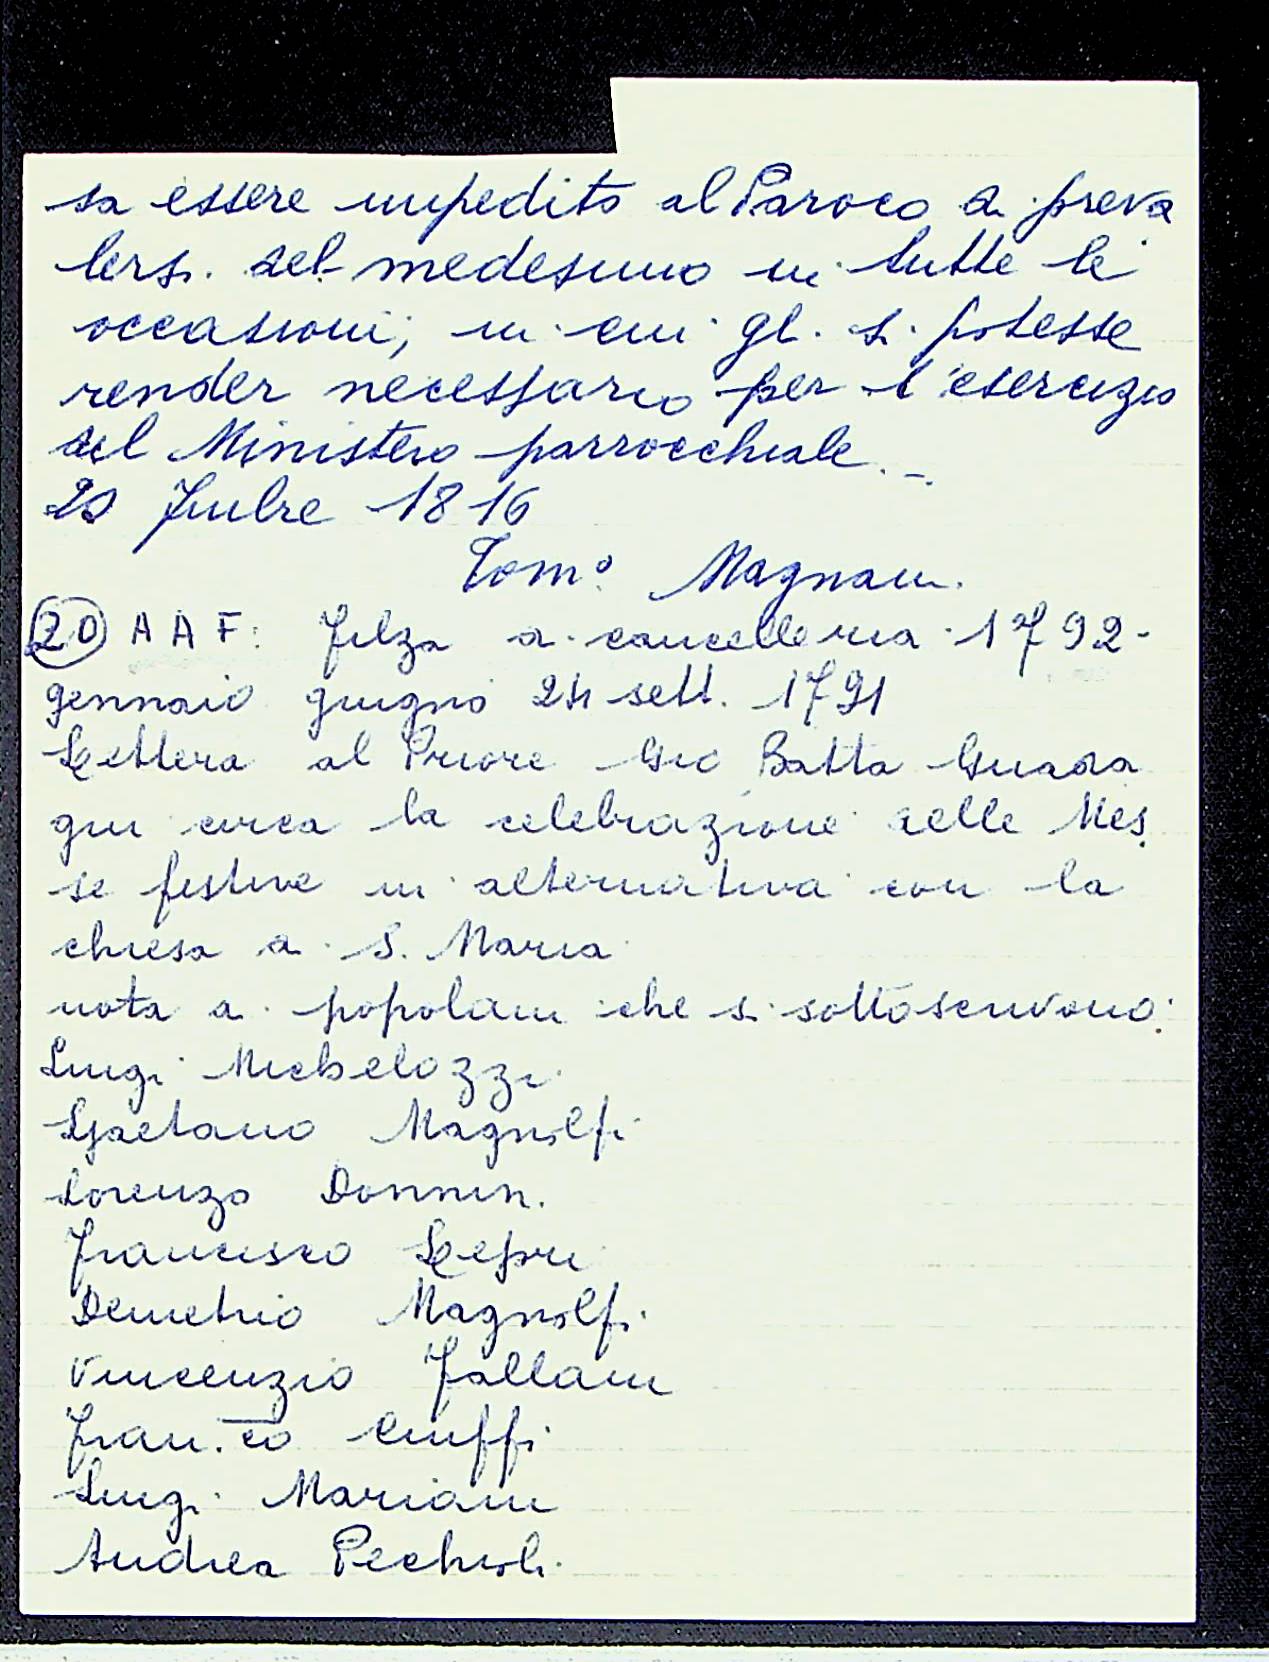 sa essere impedito al Paroco di preva
lersi del medesimo in tutte le
occasioni, in cui gli si potesse
render necessario per l'esercizio
del Ministero parrocchiale. -
20 1816
Tomº Magnani.
20 A A F: filza di cancelleria 1792-
gennaio giugno 24 sett. 1791
Lettera al Priore Gio Batta Guada
gni circa la celebrazione delle Mes
se festive in alternativa con la
chiesa di S. Maria
nota di popolani che si sottoscrivono:
Luigi Michelozzi
Gaetano Magnolfi
Lorenzo Donnini
Francesco Lepri
Demetrio Magnolfi
Vincenzio Fallani
Fran.co Ciuffi
Luigi Mariani
Andrea Pechioli